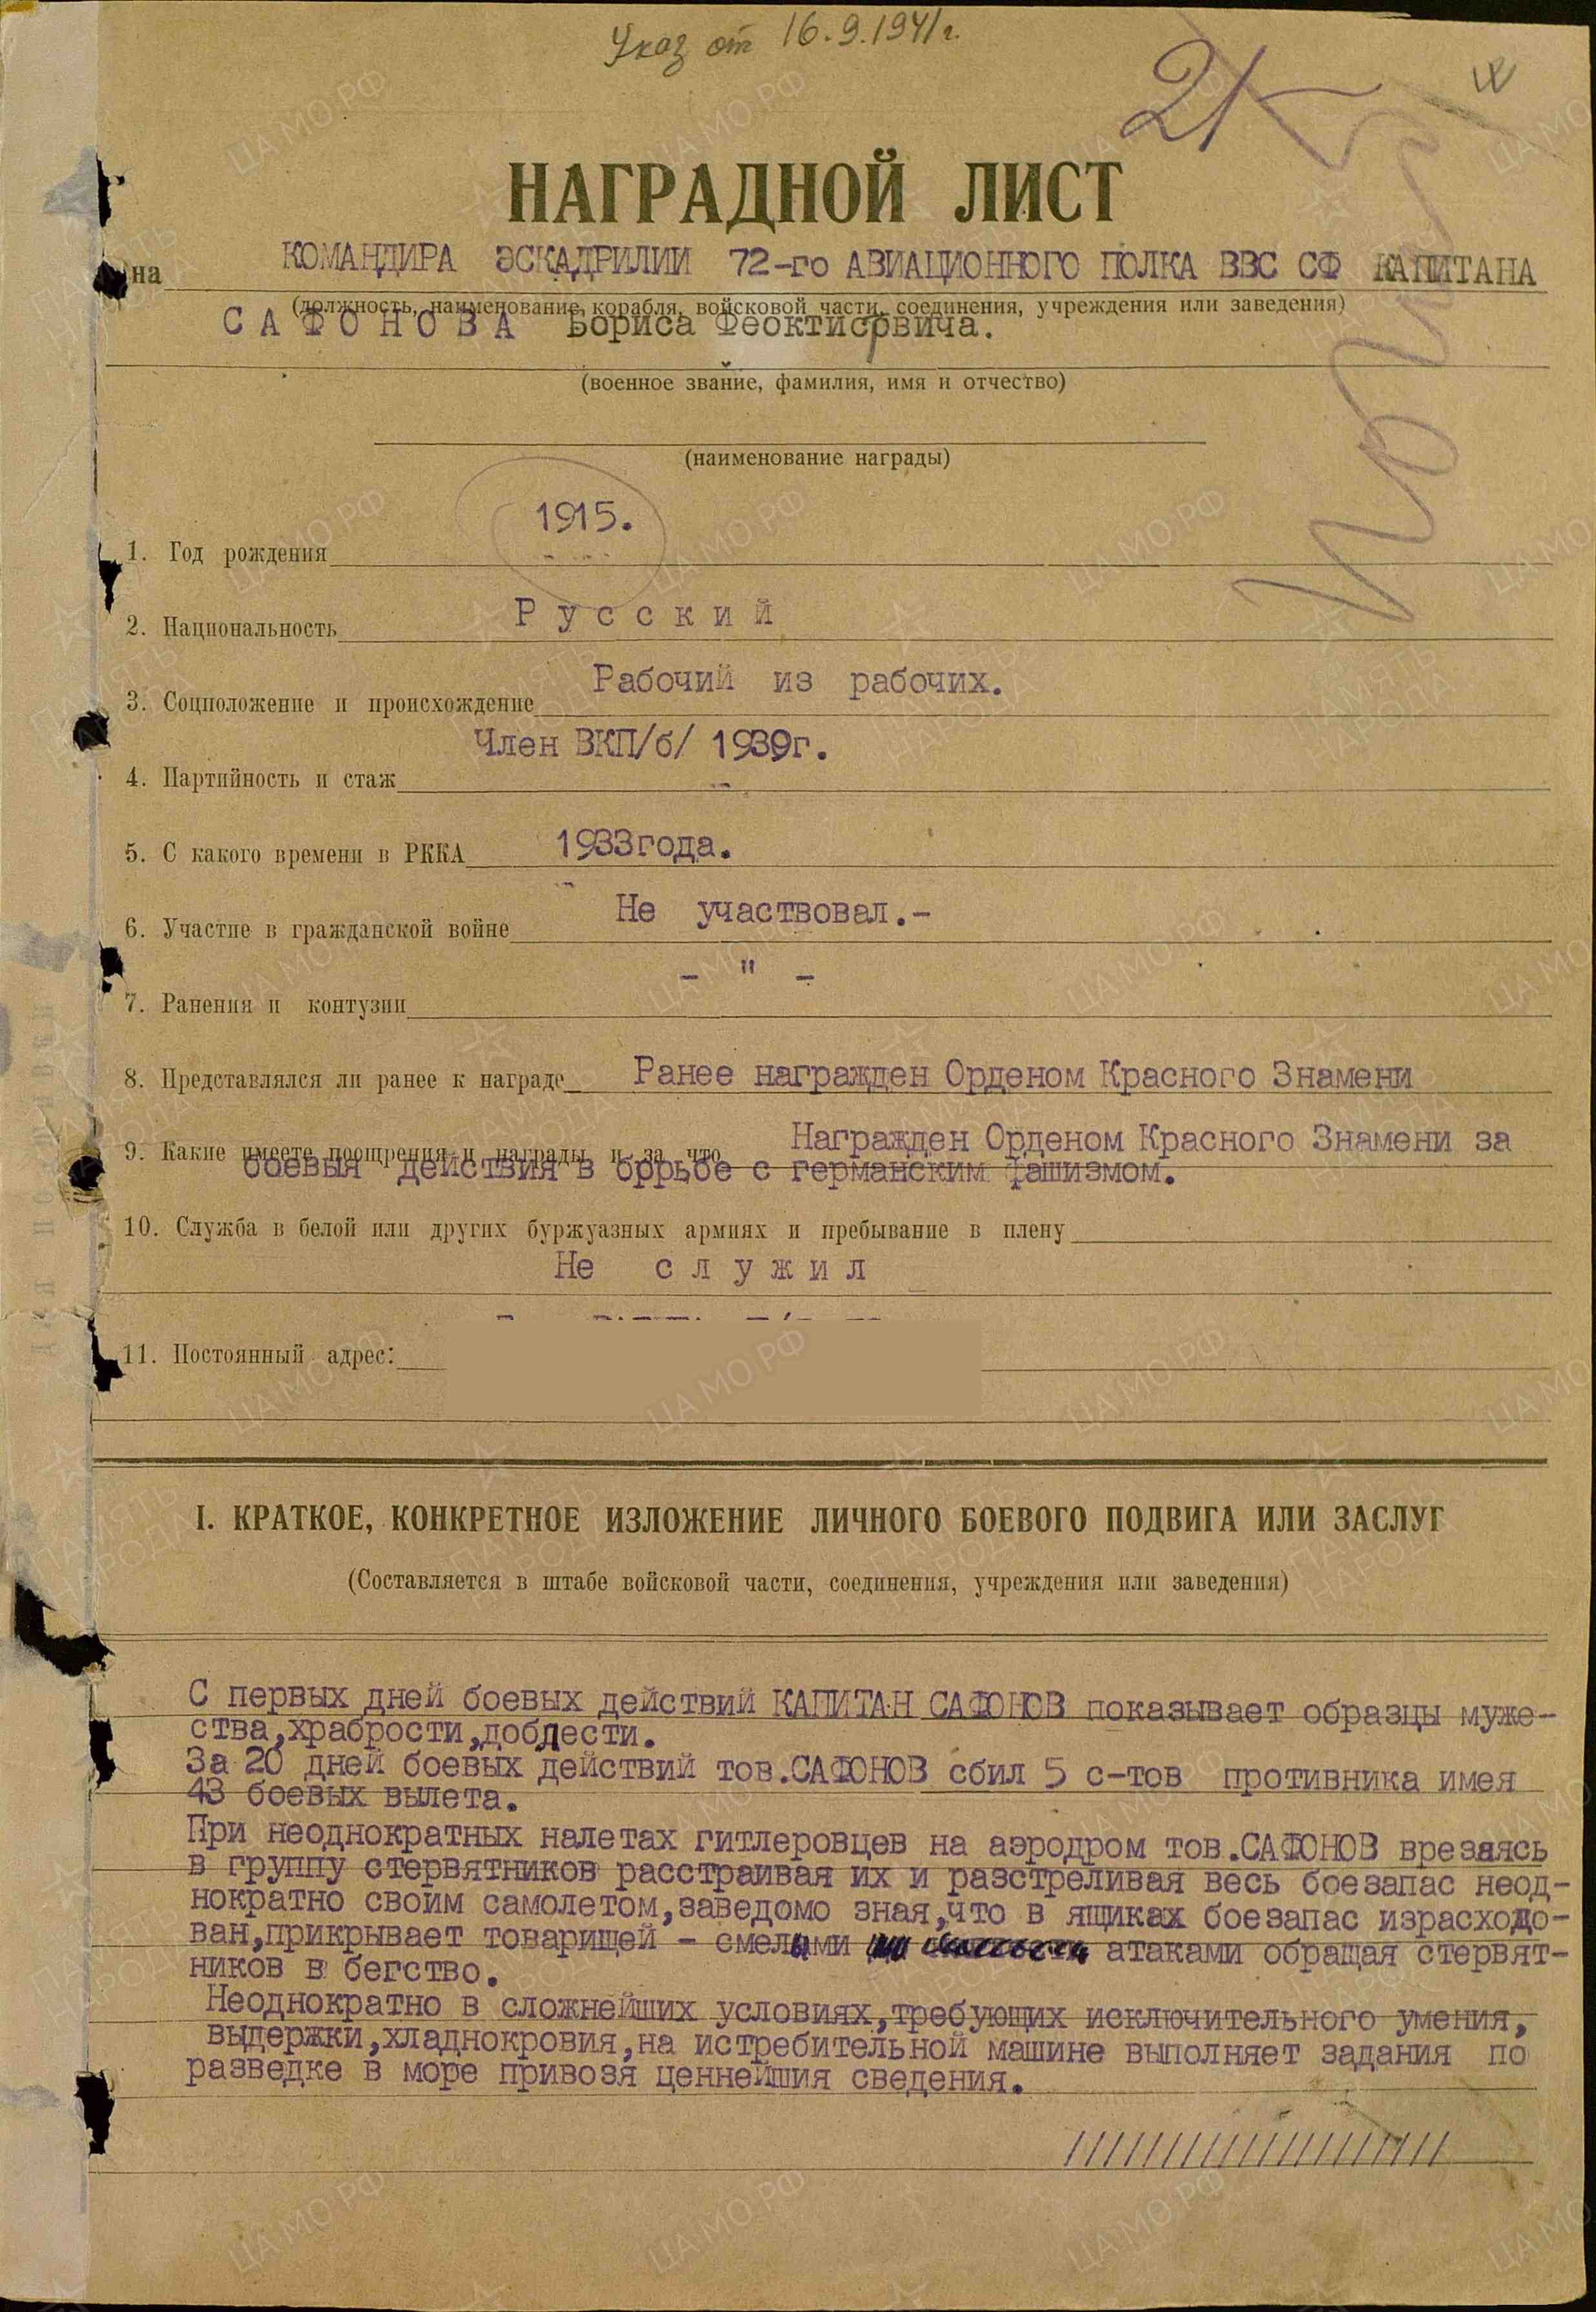 Указ от 16.9.1941г.
21
НАГРАДНОЙ ЛИСТ
на КОМАНДИРА ЭСКАДРИЛИИ 72-го АВИАЦИОННОГО ПОЛКА ВВС СФ КАПИТАНА
(должность, наименование корабля, войсковой части, соединения, учреждения или заведения)
САФОНОВА Бориса Феоктисрвича.
(военное звание, фамилия, имя и отчество)
(наименование награды)
1. Год рождения 1915.
2. Национальность Русский
3. Соцположение и происхождение Рабочий из рабочих.
4. Партийность и стаж Член ВКП/б/ 1939г.
5. С какого времени в РККА 1933года.
6. Участие в гражданской войне Не участвовал.-
7. Ранения и контузии - " -
8. Представлялся ли ранее к награде Ранее награжден Орденом Красного Знамени
9. Какие имеете поощрения и награды и за что Награжден Орденом Красного Знамени за
боевыя действия в бррьбе с германским фашизмом.
10. Служба в белой или других буржуазных армиях и пребывание в плену
Не служил
11. Постоянный адрес:
I. КРАТКОЕ, КОНКРЕТНОЕ ИЗЛОЖЕНИЕ ЛИЧНОГО БОЕВОГО ПОДВИГА ИЛИ ЗАСЛУГ
(Составляется в штабе войсковой части, соединения, учреждения или заведения)
С первых дней боевых действий КАПИТАН САФОНОВ показывает образцы муже-
ства,храбрости,доблести.
За 20 дней боевых действий тов.САФОНОВ сбил 5 с-тов противника имея
43 боевых вылета.
При неоднократных налетах гитлеровцев на аэродром тов.САФОНОВ врезаясь
в группу стервятников расстраивая их и разстреливая весь боезапас неод-
нократно своим самолетом,заведомо зная,что в ящиках боезапас израсходо-
ван,прикрывает товарищей - смелыми атаками обращая стервят-
ников в бегство.
Неоднократно в сложнейших условиях,требующих исключительного умения,
выдержки,хладнокровия,на истребительной машине выполняет задания по
разведке в море привозя ценнейшия сведения.
////////////////////
ЦА МО РФ
ПАМЯТЬ НАРОДА